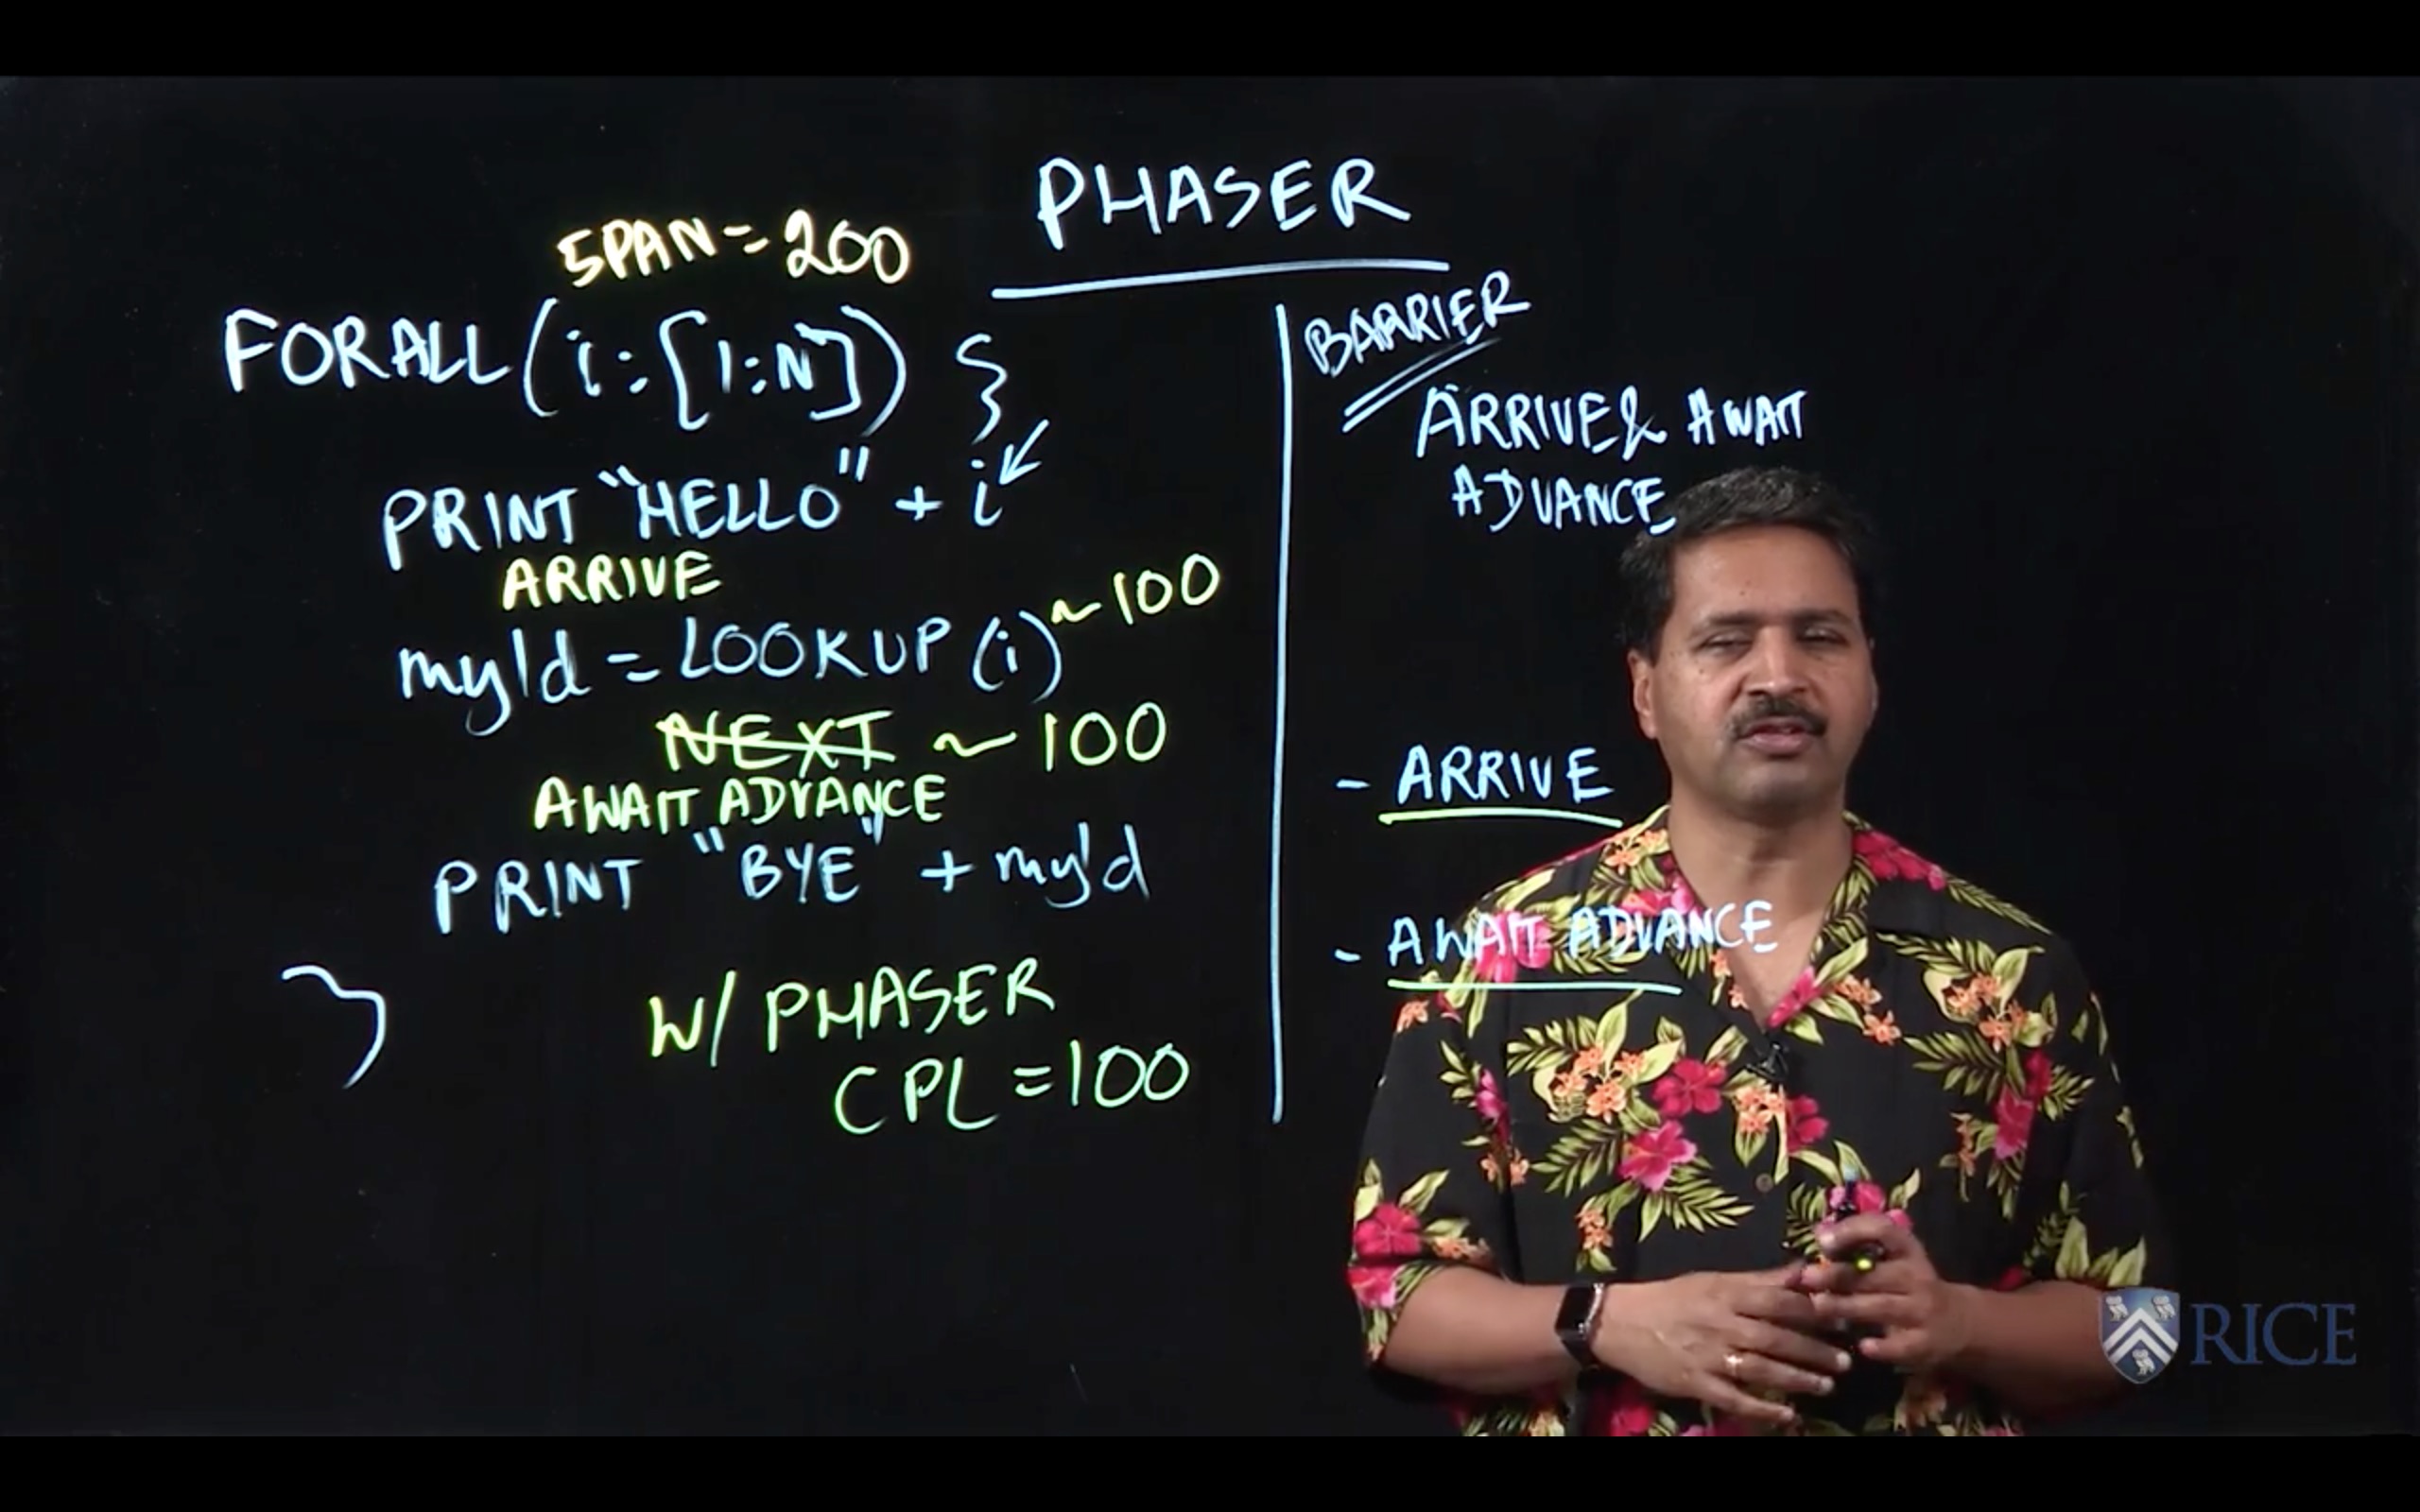 PHASER
SPAN = 200
FORALL (i : [1:N]) {
PRINT "HELLO" + i
ARRIVE
myId = LOOKUP (i) ~ 100
NEXT ~ 100
AWAIT ADVANCE
PRINT "BYE" + myId
}
W/ PHASER
CPL = 100
BARRIER
ARRIVE & AWAIT
ADVANCE
- ARRIVE
- AWAIT ADVANCE
RICE